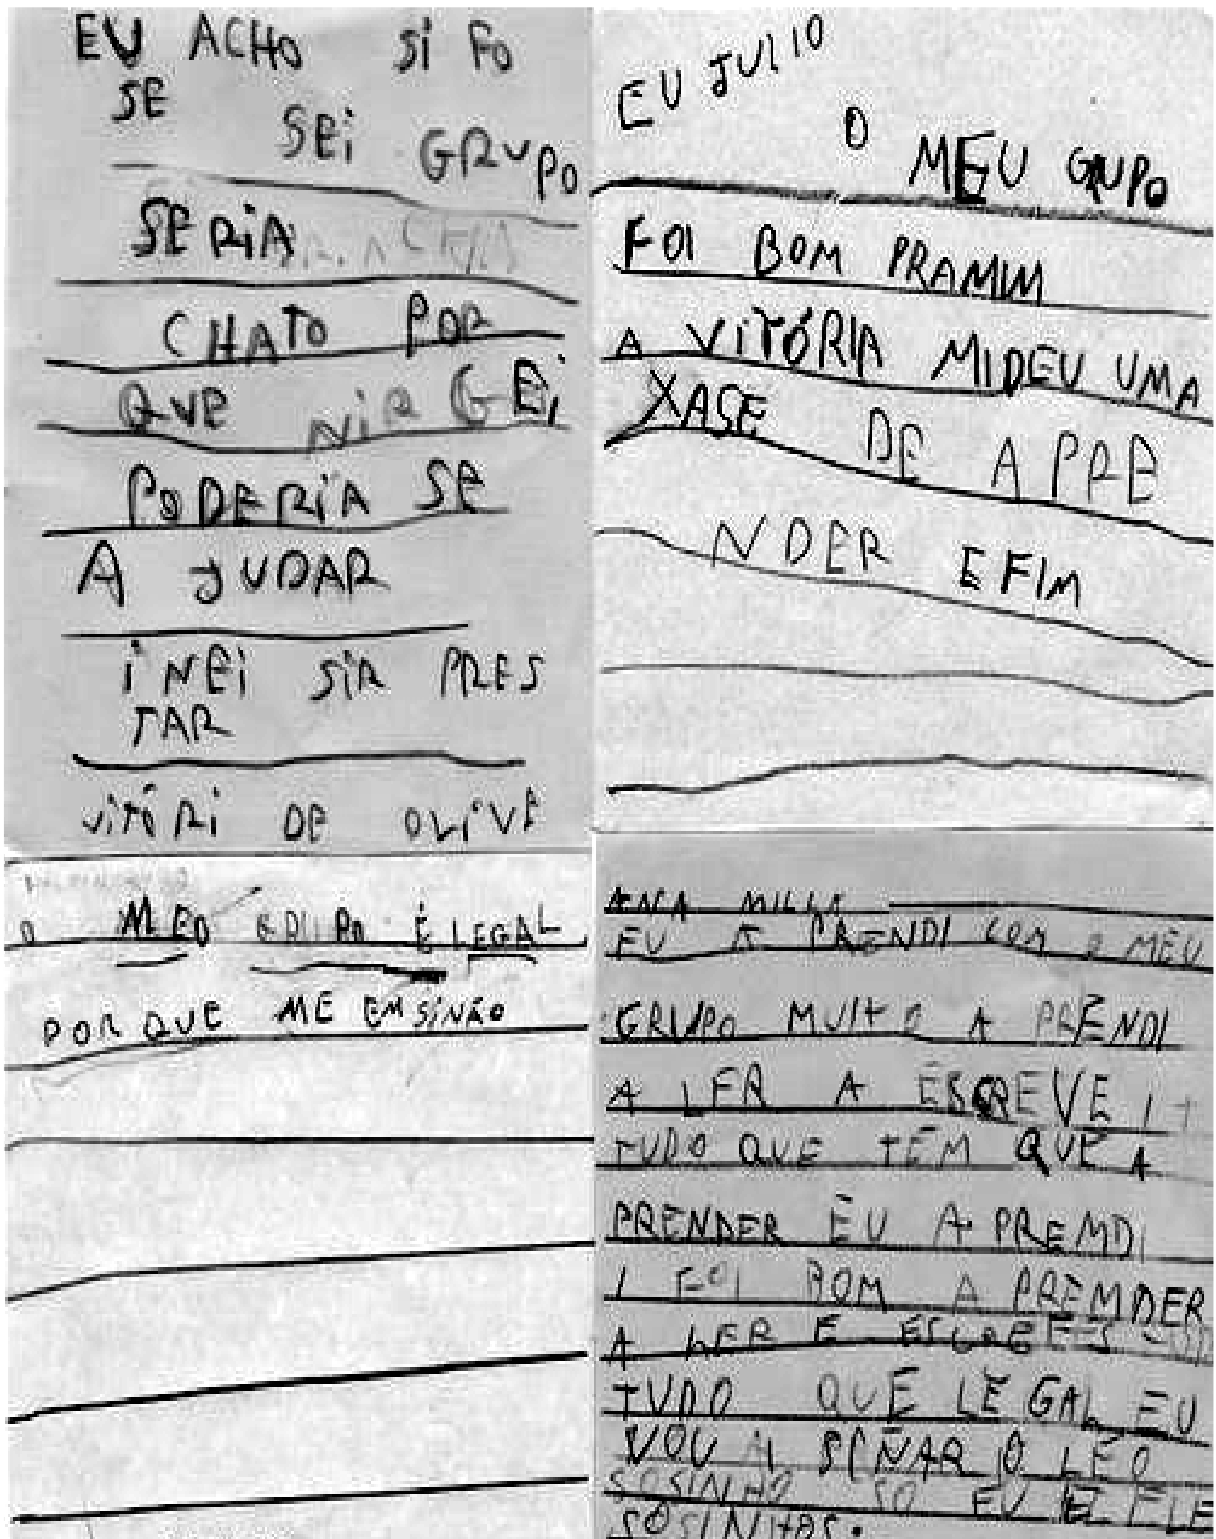 EU ACHO SI FO
SE
SEI GRUPO
SERIA
CHATO POR
QUE NIG GEI
PODERIA SE
A JUDAR
I NEI SIR PRES
TAR
VITÓRI DE OLIVE
EU JULIO
O MEU GUPO
FOI BOM PRAMIM
A VITÓRIA MIDEU UMA
XASE DE APRE
NDER E FIM
O MEO GRUPO É LEGAL
POR QUE ME EMSINÃO
ANA
EU A PRENDI COM O MEU
GRUPO MUITO A PRENDI
A LER A ESCREVE I
TUDO QUE TEM QUE A
PRENDER EU A PREMDI
I FOI BOM A PREMDER
A LER E
TUDO QUE LEGAL EU
VOU A SINAR O LEO
SOSINHO SO EU E ELE
SOSINHOS.